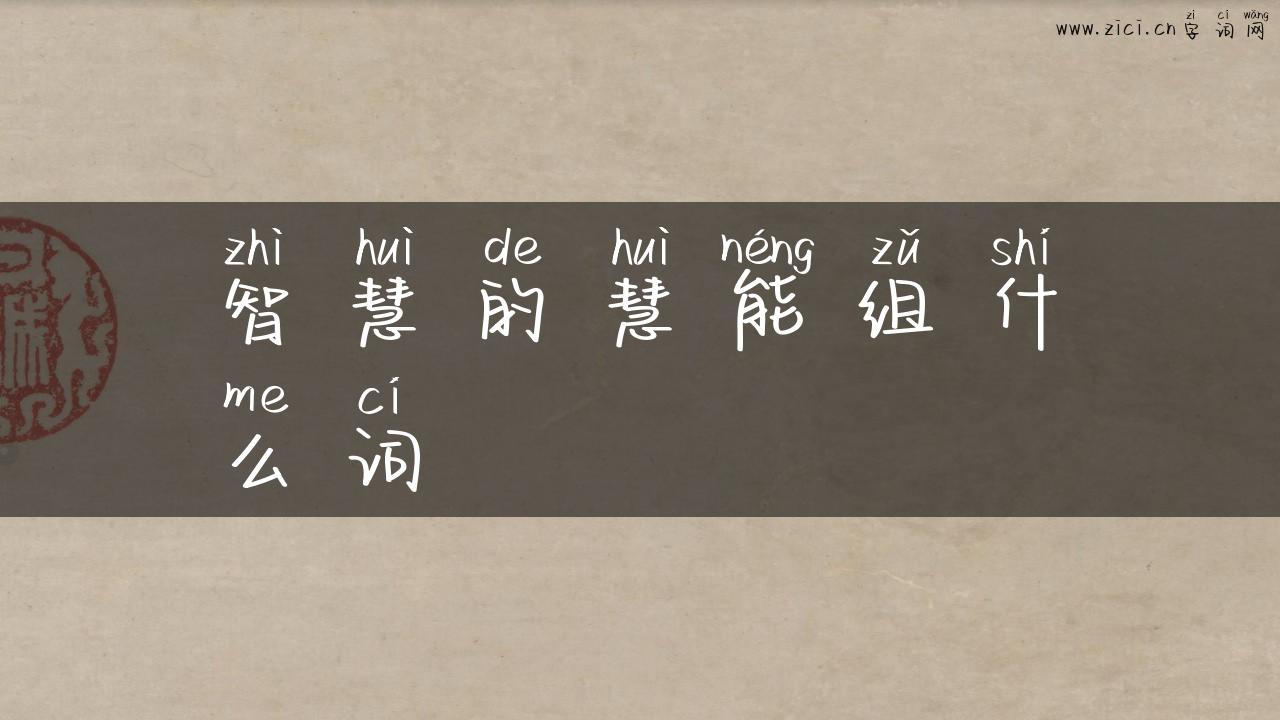 zì cí wǎng
www.zici.cn 字 词 网
zhì huì de huì néng zǔ shí
智 慧 的 慧 能 组 什
me cí
么 词